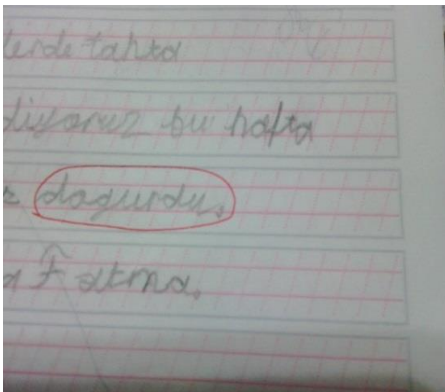 lerde tahta
diyoruz bu hafta
z dogurdu,
a Fatma.